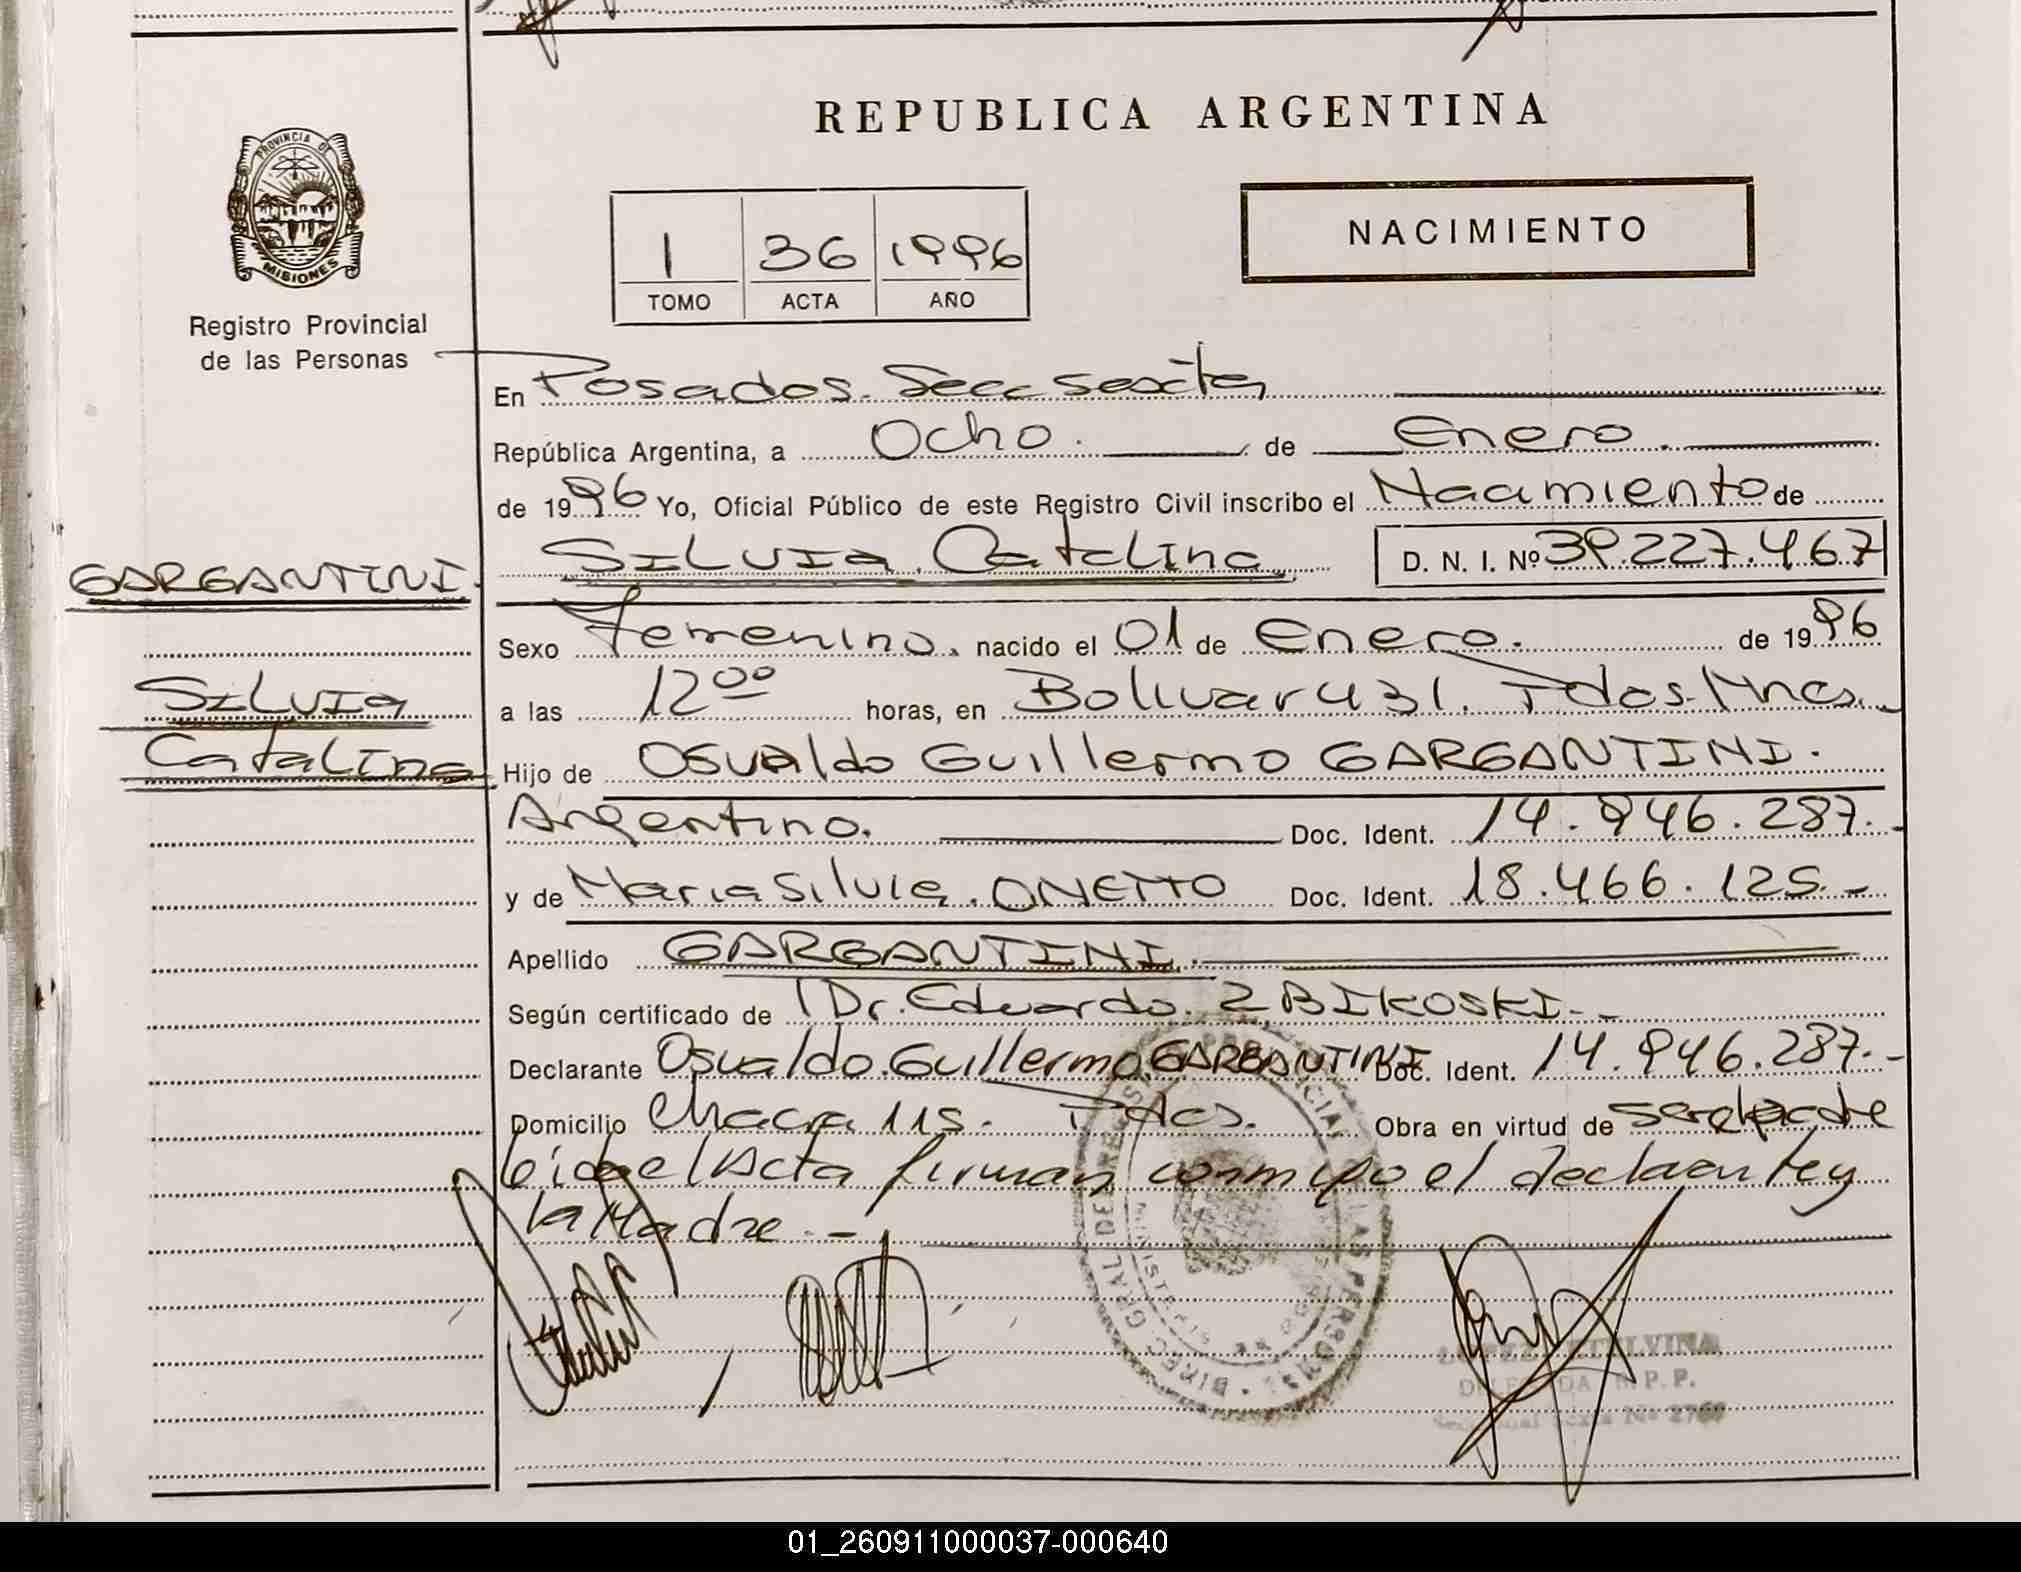 REPUBLICA ARGENTINA
PROVINCIA DE
MISIONES
Registro Provincial
de las Personas
1 36 1996
TOMO ACTA AÑO
NACIMIENTO
En Posadas. Secc sexta
República Argentina, a Ocho. de Enero.
de 1996 Yo, Oficial Público de este Registro Civil inscribo el Nacimiento de
SILVIA Catalina D. N. I. Nº 39.227.467
GARGANTINI.
SILVIA
Catalina
Sexo Femenino. nacido el 01 de Enero. de 1996
a las 12⁰⁰ horas, en Bolivar 431. Pdas. Mnes.
Hijo de Osvaldo Guillermo GARGANTINI.
Argentino. Doc. Ident. 14.946.287.-
y de Maria Silvia. ONETTO Doc. Ident. 18.466.125.-
Apellido GARGANTINI.
Según certificado de Dr. Eduardo ZBIKOSKI.-
Declarante Osvaldo. Guillermo. GARGANTINI Doc. Ident. 14.946.287.-
Domicilio Chacra 115. Pdas. Obra en virtud de
el Acta firman conmigo el declarante y
la Madre.-
DIREC. GRAL. DE REGIS PROVINCIAL LAS PERSONAS
LOPEZ ETELVINA
DELEGADA R.P.P.
Seccional Sexta Nº
01_260911000037-000640